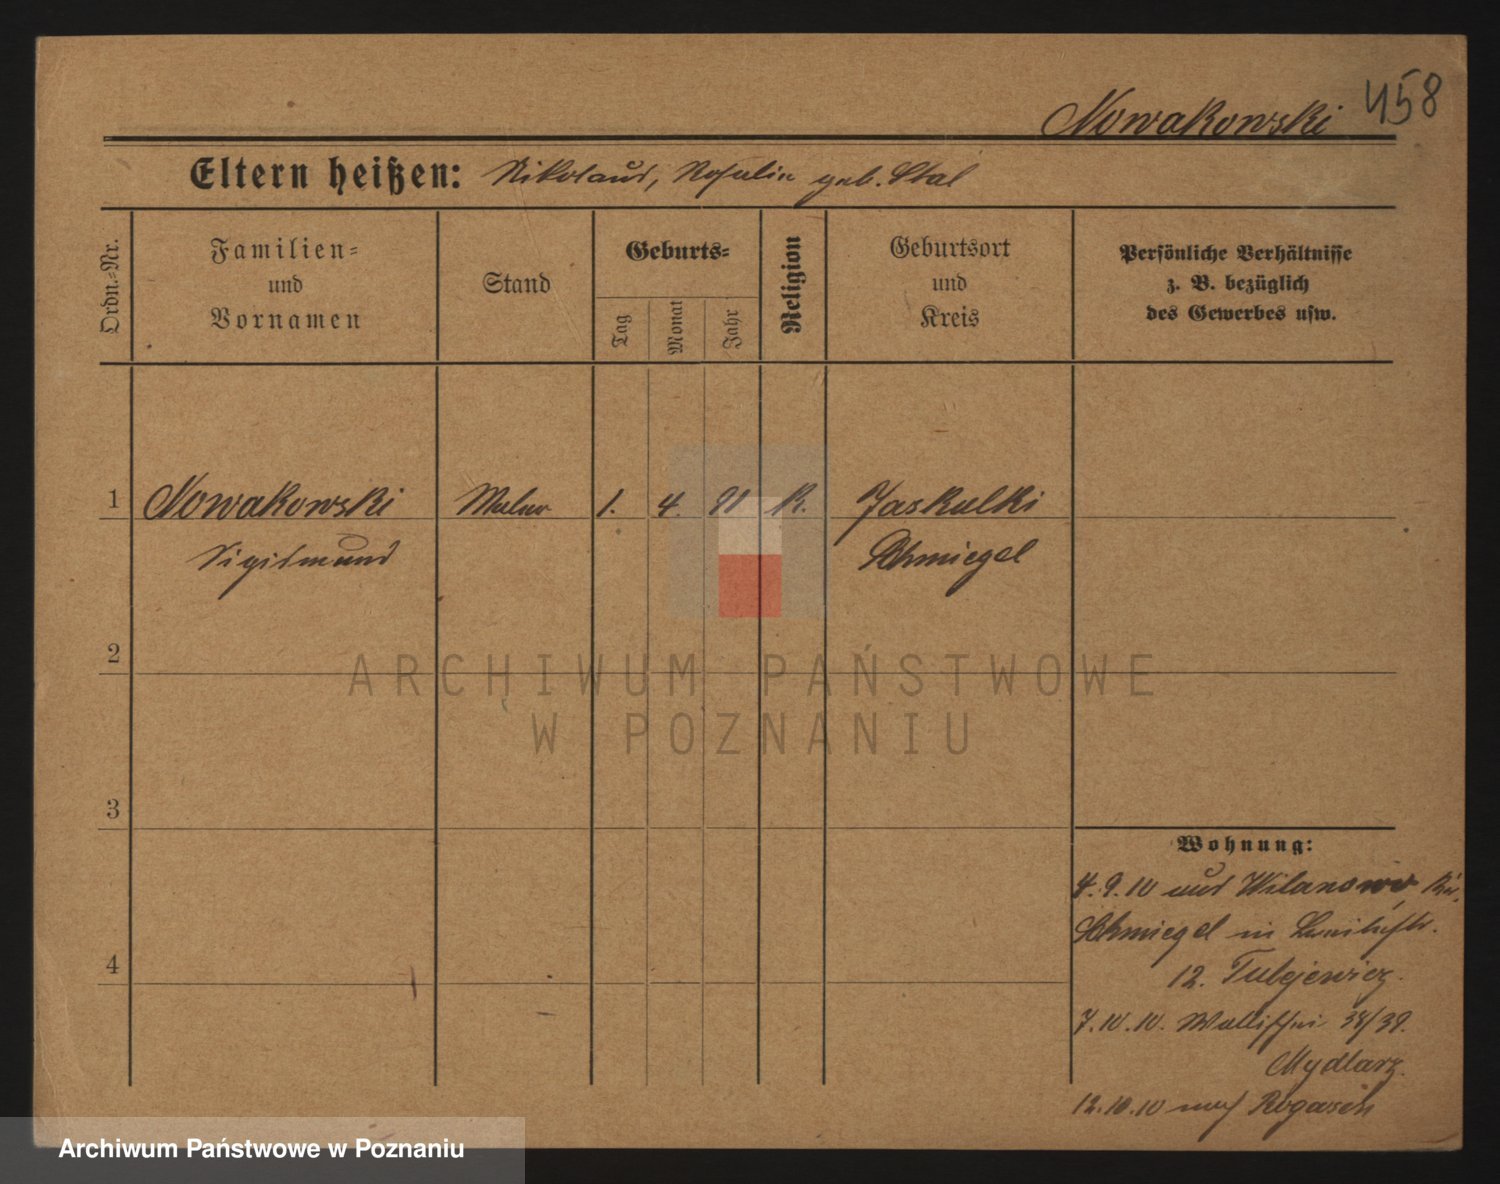 458
Nowakowski
Eltern heißen: Nikolaus, Rosalie geb. Stal
Ordn.=Nr.
Familien=
und
Vornamen
Stand
Geburts=
Tag
Monat
Jahr
Religion
Geburtsort
und
Kreis
Persönliche Verhältnisse
z. B. bezüglich
des Gewerbes usw.
1 Nowakowski Maler 1. 4. 91 K. Jaskulki
Sigismund Schmiegel
2
3
4
ARCHIWUM PAŃSTWOWE
W POZNANIU
Wohnung:
4.9.10 aus Wilanowo, Kr.
Schmiegel in
12. Tulejewicz.
7.10.10. Wallischei 38/39.
Mydlarz.
12.10.10 nach Rogasen
Archiwum Państwowe w Poznaniu